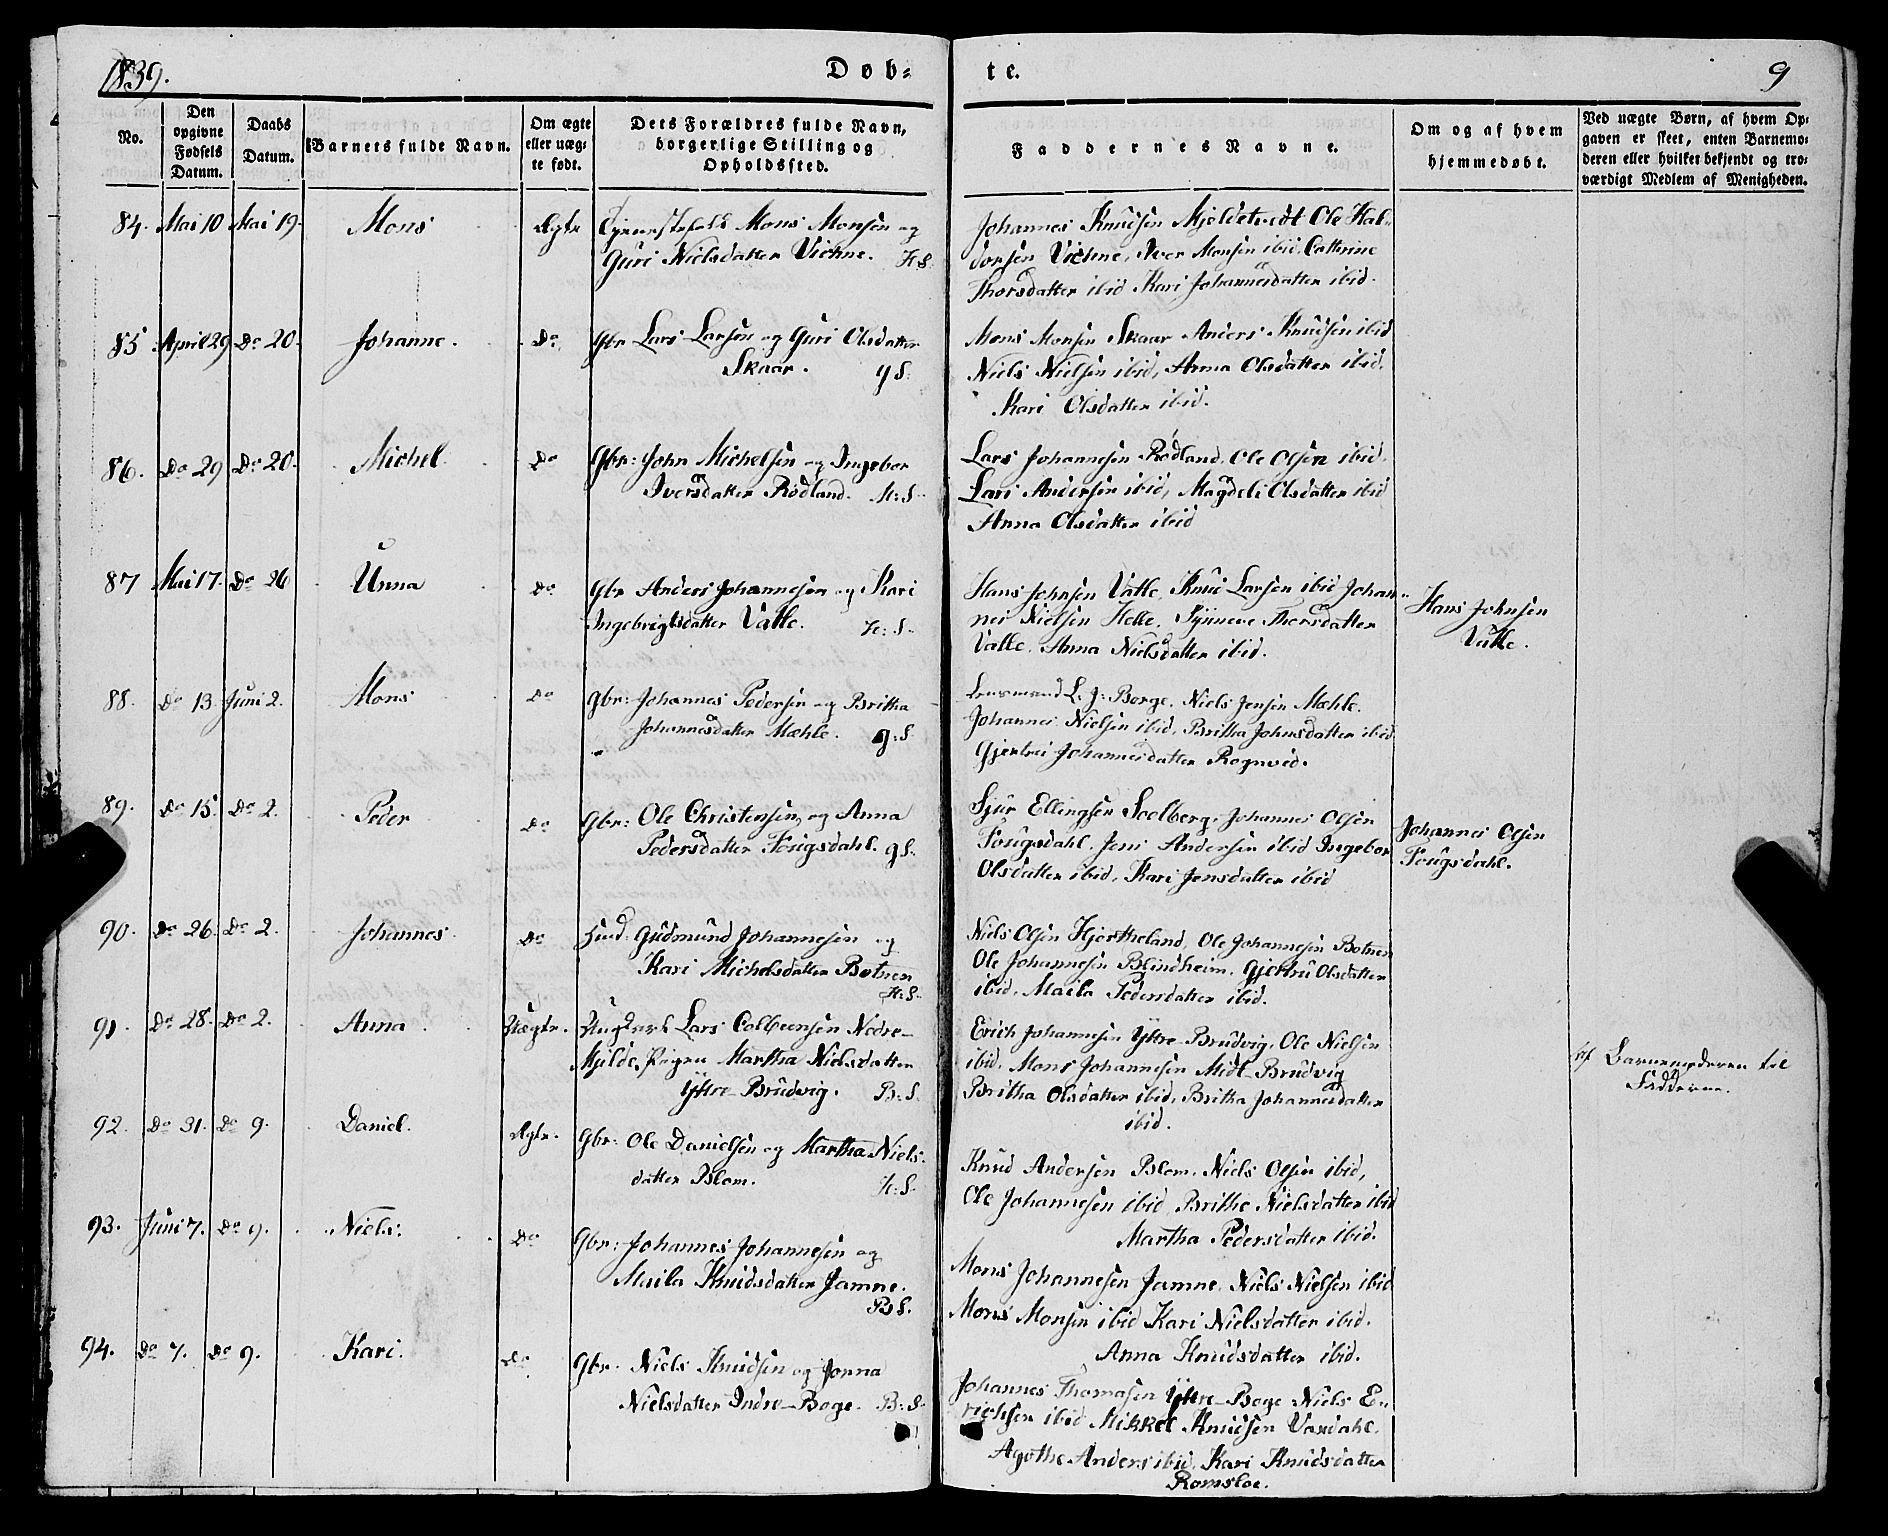 1839.
Døb-
te.
9
No.
Den
opgivne
Fødsels
Datum.
Daabs
Datum.
Barnets fulde Navn.
Om ægte
eller uæg-
te født.
Dets Forældres fulde Navn,
borgerlige Stilling og
Opholdssted.
Faddernes Navne.
Om og af hvem
hjemmedøbt.
Ved uægte Børn, af hvem Op-
gaven er skeet, enten Barnemo-
deren eller hvilket bekjendt og tro-
værdigt Medlem af Menigheden.
84. Mai 10 Mai 19. Mons Ægte
Mons Monsen og
Guri Nielsdatter Vichne. H S.
Johannes Knudsen Mjeldetvedt Ole Hal-
dorsen Vichne, Iver Monsen ibid. Cathrine
Thorsdatter ibid Kari Johannesdatter ibid.
85 April 29 Do 20. Johanne. Do
Gbr Lars Larsen og Guri Olsdatter
Skaar. g S.
Mons Monsen Skaar Anders Knudsen ibid
Niels Nielsen ibid, Anna Olsdatter ibid.
Kari Olsdatter ibid.
86. Do 29 Do 20. Michel Do
Gbr: John Michelsen og Ingebor
Iversdatter Rødland. H: S.
Lars Johannesen Rødland, Ole Olsen ibid.
Lars Andersen ibid, Magdeli Olsdatter ibid
Anna Olsdatter ibid
87 Mai 17. Do 26 Unna Do
Gbr Anders Johannesen og Kari
Ingebrigtsdatter Valle. H: S.
Hans Johnsen Valle, Knud Larsen ibid Johan-
nes Nielsen Helle, Synneve Thorsdatter
Valle. Anna Nielsdatter ibid.
Hans Johnsen
Valle.
88. Do 13 Juni 2. Mons Do
Gbr: Johannes Pedersen og Britha
Johannesdatter Mæhle. g: S.
Lensmand L. J: Borge, Niels Jensen Mæhle.
Johannes Nielsen ibid, Britha Johnsdatter ibid
Gjertrei Johannesdatter Rognved.
89. Do 15. Do 2. Peder Do
Gbr: Ole Christensen, og Anna
Pedersdatter Fougsdahl. g S.
Sjur Ellingsen Soelberg, Johannes Olsen
Fougsdahl, Jens Andersen ibid Ingebor
Olsdatter ibid, Kari Jensdatter ibid
Johannes Olsen
Fougsdahl.
90. Do 26. Do 2. Johannes. Do
Gudmund Johannesen og
Kari Michelsdatter Botnen
H: S.
Niels Olsen Hjertheland, Ole Johannesen Botnen
Ole Johannesen Blindheim. Gjertru Olsdatter
ibid, Maila Pedersdatter ibid.
91. Do 28. Do 2. Anna. Uægte.
Ungkarl Lars Colbensen Nedre-
Mjelde, Pigen Martha Nielsdatter
Yttre-Brudvig. B: S.
Erich Johannesen Yttre-Brudvig, Ole Nielsen
ibid, Mons Johannesen Midt-Brudvig
Britha Olsdatter ibid, Britha Johannesdatter
ibid.
af Barnemoderen til
Fadderne.
92. Do 31. Do 9. Daniel. Ægte.
Gbr: Ole Danielsen og Martha Niels-
datter Blom. H: S.
Knud Andersen Blom, Niels Olsen ibid,
Ole Johannesen ibid, Brithe Nielsdatter ibid
Martha Pedersdatter ibid.
93. Juni 7. Do 9. Niels: Do
Gbr: Johannes Johannesen og
Maila Knudsdatter Jamne.
B S.
Mons Johannesen Jamne, Niels Nielsen ibid
Mons Monsen ibid Kari Nielsdatter ibid.
Anna Knudsdatter ibid.
94. Do 7. Do 9. Kari. Do
Gbr. Niels Knudsen og Jonna
Nielsdatter Indre-Boge. B: S.
Johannes Thomasen Yttre-Boge Niels E-
richsen ibid Mikkel Knudsen Vaxdahl.
Agothe Anders ibid. Kari Knudsdatter
Romsloe.